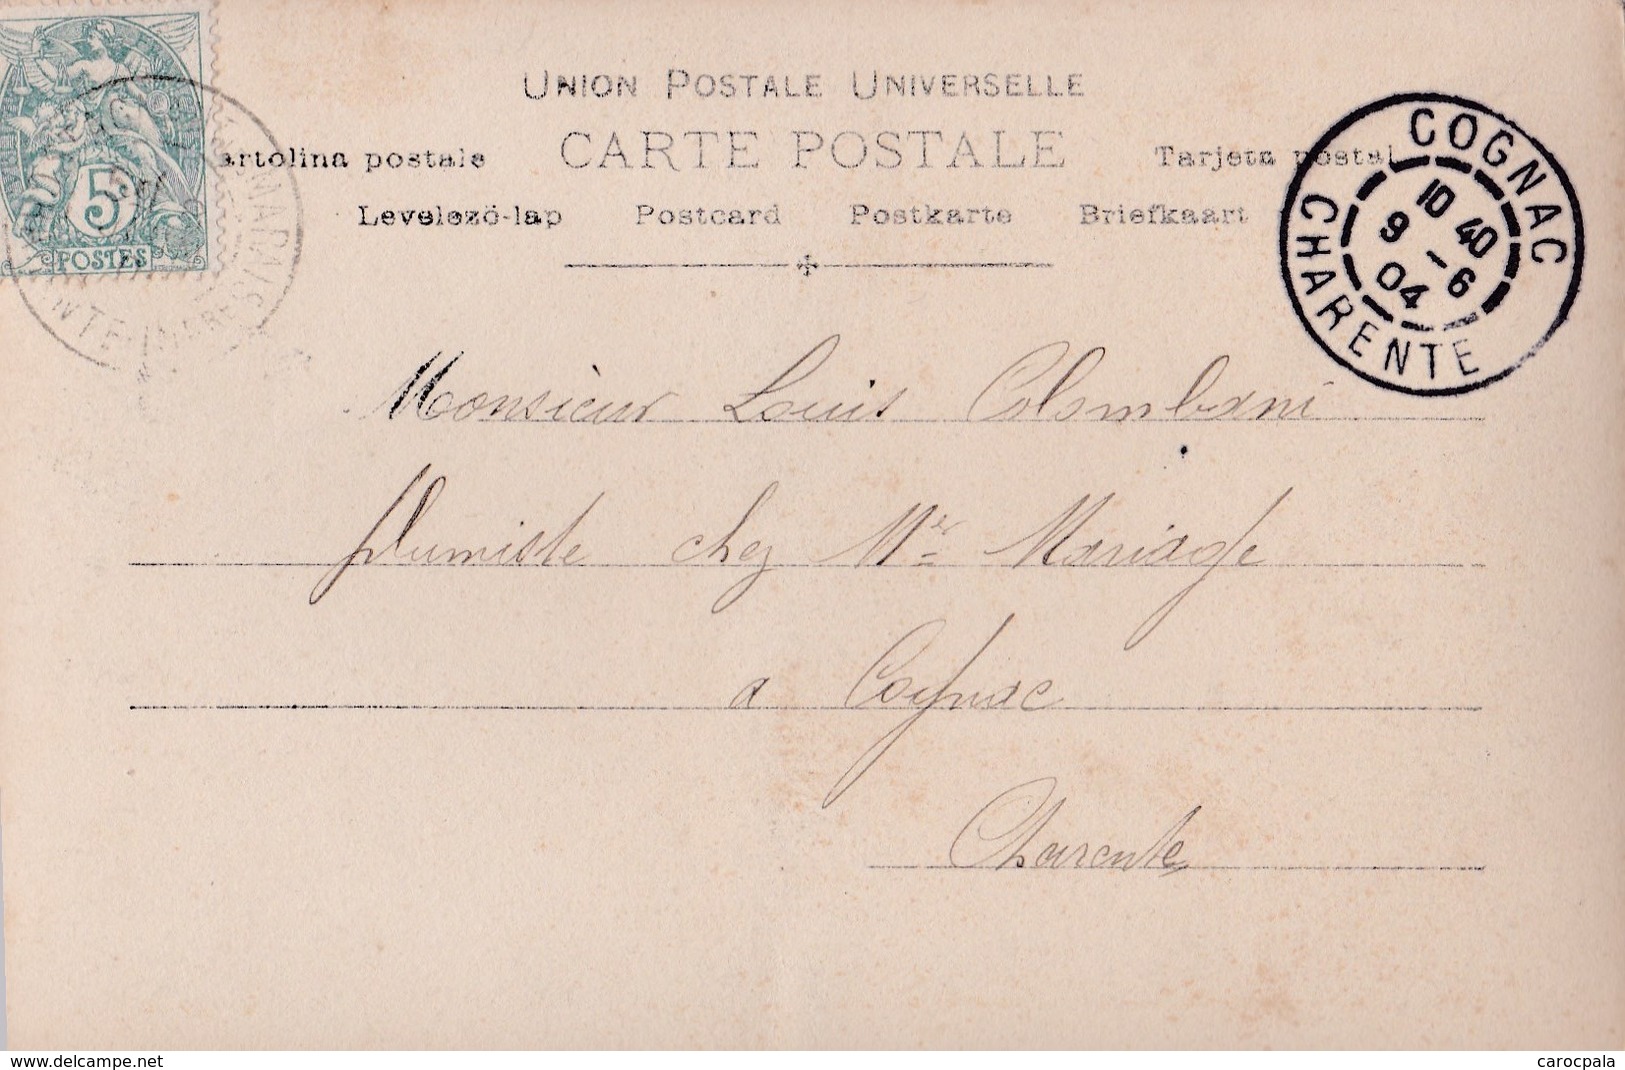 UNION POSTALE UNIVERSELLE
CARTE POSTALE
artolina postale
Tarjeta postal
Levelező-lap Postcard Postkarte Briefkaart
5
POSTES
MARAIS
NTE-INFRE
COGNAC
10 40
9 - 6
04
CHARENTE
Monsieur Louis Colombani
plumiste chez Mr Mariage
a Cognac
Charente
www.delcampe.net
carocpala